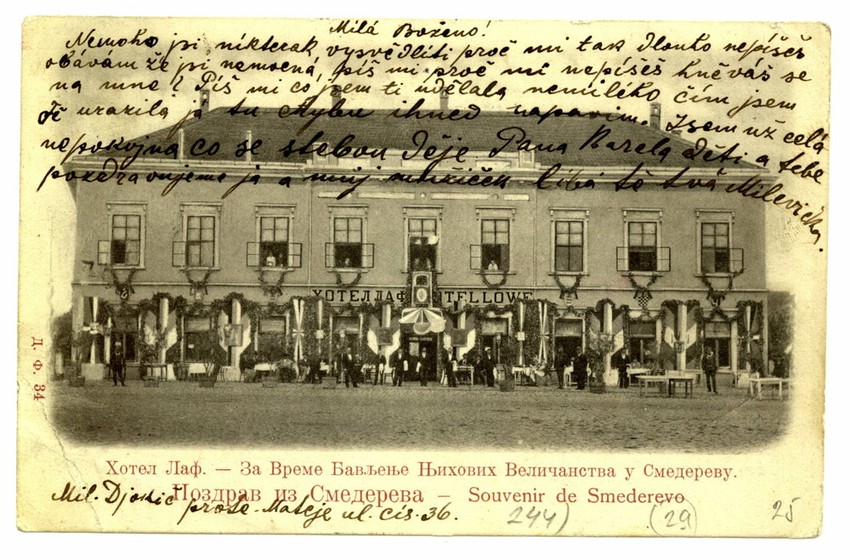 Milá Boženo!
Nemoho ji nikterak vysvědliti proč mi tak dlouho nepíšeš
obávám že ji nemocná, piš mi proč mi nepíšeš hněváš se
na mne? Piš mi co jsem ti udělala nemilého čím jsem
Tě urazila já tu hybu ihned napravim. Jsem už celá
nepokojna co se stebou děje Pana Karela děti a tebe
pozdravujeme já a můj mužiček líbá tě tvá Milevička.
ХОТЕЛ ЛАФ
Д. Ф. 34
Хотел Лаф. — За Време Бављење Њихових Величанства у Смедереву.
Поздрав из Смедерева — Souvenir de Smederevo
Mil. Djokic prote-Mateje ul. cis. 36.
244) (29) 25